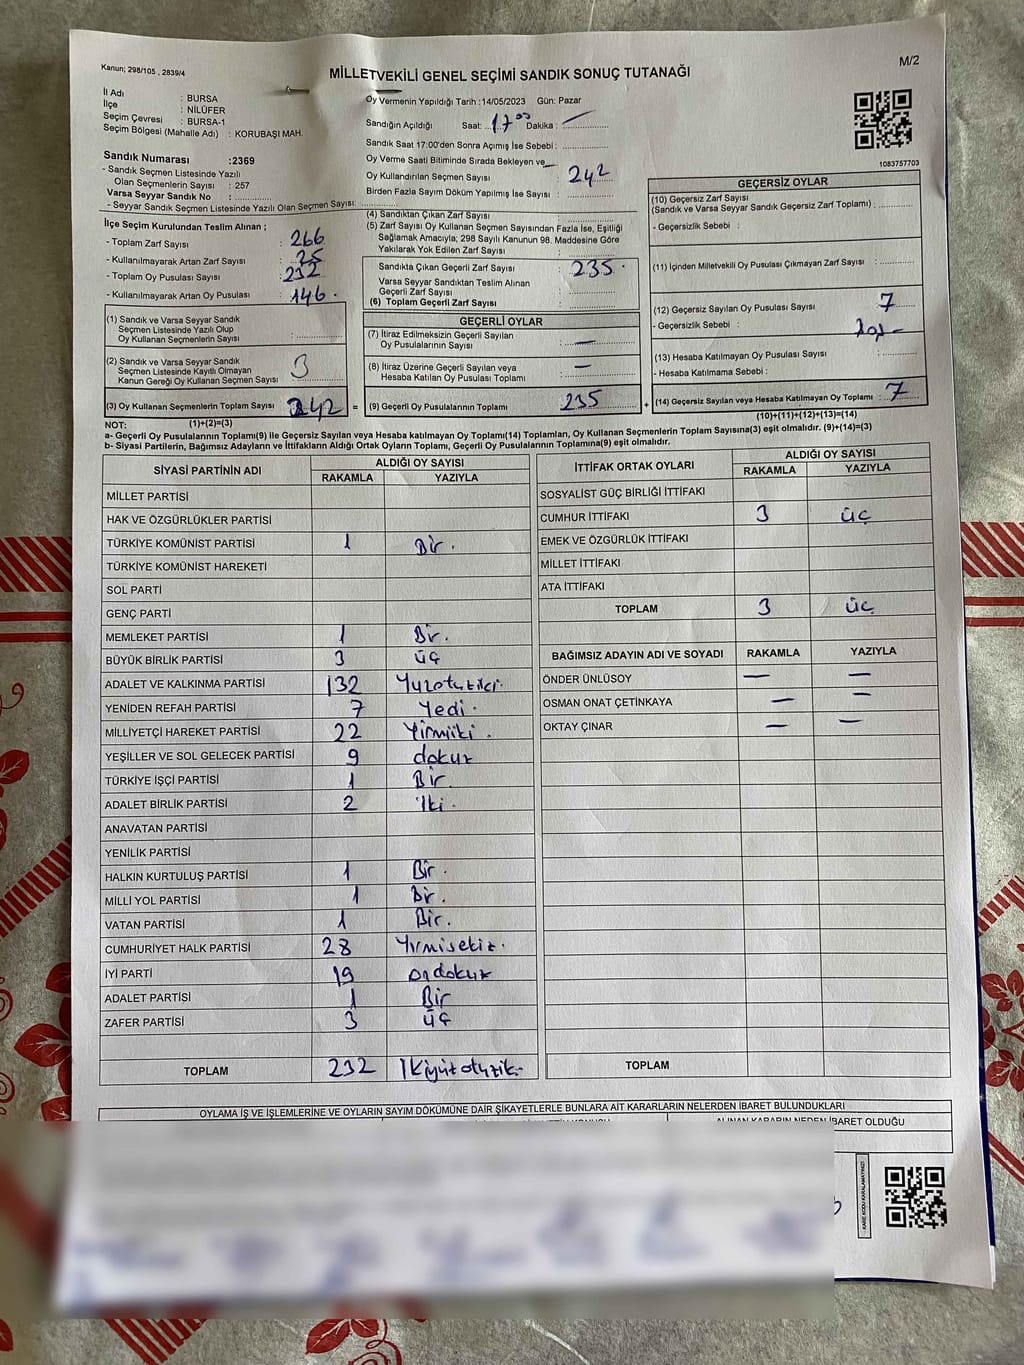 Kanun; 298/105 , 2839/4
M/2
MİLLETVEKİLİ GENEL SEÇİMİ SANDIK SONUÇ TUTANAĞI
İl Adı : BURSA
İlçe : NİLÜFER
Seçim Çevresi : BURSA-1
Seçim Bölgesi (Mahalle Adı) : KORUBAŞI MAH.
Sandık Numarası :2369
- Sandık Seçmen Listesinde Yazılı
Olan Seçmenlerin Sayısı : 257
Varsa Seyyar Sandık No :
- Seyyar Sandık Seçmen Listesinde Yazılı Olan Seçmen Sayısı:
Oy Vermenin Yapıldığı Tarih :14/05/2023 Gün: Pazar
Sandığın Açıldığı Saat: 17 00 Dakika :
Sandık Saat 17:00'den Sonra Açımış İse Sebebi :
Oy Verme Saati Bitiminde Sırada Bekleyen ve
Oy Kullandırılan Seçmen Sayısı : 242
Birden Fazla Sayım Döküm Yapılmış İse Sayısı :
1083757703
İlçe Seçim Kurulundan Teslim Alınan ;
- Toplam Zarf Sayısı : 266
- Kullanılmayarak Artan Zarf Sayısı : 25
- Toplam Oy Pusulası Sayısı : 232
- Kullanılmayarak Artan Oy Pusulası : 146
(1) Sandık ve Varsa Seyyar Sandık
Seçmen Listesinde Yazılı Olup
Oy Kullanan Seçmenlerin Sayısı :
(2) Sandık ve Varsa Seyyar Sandık
Seçmen Listesinde Kayıtlı Olmayan
Kanun Gereği Oy Kullanan Seçmen Sayısı : 3
(3) Oy Kullanan Seçmenlerin Toplam Sayısı : 242 =
(4) Sandıktan Çıkan Zarf Sayısı :
(5) Zarf Sayısı Oy Kullanan Seçmen Sayısından Fazla İse, Eşitliği
Sağlamak Amacıyla; 298 Sayılı Kanunun 98. Maddesine Göre
Yakılarak Yok Edilen Zarf Sayısı :
Sandıkta Çıkan Geçerli Zarf Sayısı : 235
Varsa Seyyar Sandıktan Teslim Alınan
Geçerli Zarf Sayısı :
(6) Toplam Geçerli Zarf Sayısı :
GEÇERLİ OYLAR
(7) İtiraz Edilmeksizin Geçerli Sayılan
Oy Pusulalarının Sayısı : —
(8) İtiraz Üzerine Geçerli Sayılan veya
Hesaba Katılan Oy Pusulası Toplamı : —
(9) Geçerli Oy Pusulalarının Toplamı : 235 +
GEÇERSİZ OYLAR
(10) Geçersiz Zarf Sayısı
(Sandık ve Varsa Seyyar Sandık Geçersiz Zarf Toplamı) :
- Geçersizlik Sebebi :
(11) İçinden Milletvekili Oy Pusulası Çıkmayan Zarf Sayısı :
(12) Geçersiz Sayılan Oy Pusulası Sayısı : 7
- Geçersizlik Sebebi :
(13) Hesaba Katılmayan Oy Pusulası Sayısı :
- Hesaba Katılmama Sebebi :
(14) Geçersiz Sayılan veya Hesaba Katılmayan Oy Toplamı : 7
NOT: (1)+(2)=(3)
(10)+(11)+(12)+(13)=(14)
a- Geçerli Oy Pusulalarının Toplamı(9) ile Geçersiz Sayılan veya Hesaba katılmayan Oy Toplamı(14) Toplamları, Oy Kullanan Seçmenlerin Toplam Sayısına(3) eşit olmalıdır. (9)+(14)=(3)
b- Siyasi Partilerin, Bağımsız Adayların ve İttifakların Aldığı Ortak Oyların Toplamı, Geçerli Oy Pusulalarının Toplamına(9) eşit olmalıdır.
SİYASİ PARTİNİN ADI ALDIĞI OY SAYISI
RAKAMLA YAZIYLA
MİLLET PARTİSİ
HAK VE ÖZGÜRLÜKLER PARTİSİ
TÜRKİYE KOMÜNİST PARTİSİ 1 Bir.
TÜRKİYE KOMÜNİST HAREKETİ
SOL PARTİ
GENÇ PARTİ
MEMLEKET PARTİSİ 1 Bir.
BÜYÜK BİRLİK PARTİSİ 3 üç
ADALET VE KALKINMA PARTİSİ 132 Yüzotuziki.
YENİDEN REFAH PARTİSİ 7 Yedi.
MİLLİYETÇİ HAREKET PARTİSİ 22 Yirmiiki.
YEŞİLLER VE SOL GELECEK PARTİSİ 9 dokuz
TÜRKİYE İŞÇİ PARTİSİ 1 Bir
ADALET BİRLİK PARTİSİ 2 iki.
ANAVATAN PARTİSİ
YENİLİK PARTİSİ
HALKIN KURTULUŞ PARTİSİ 1 Bir.
MİLLİ YOL PARTİSİ 1 Bir.
VATAN PARTİSİ 1 Bir.
CUMHURİYET HALK PARTİSİ 28 Yirmisekiz.
İYİ PARTİ 19 Ondokuz
ADALET PARTİSİ 1 Bir
ZAFER PARTİSİ 3 üç
TOPLAM 232 İkiyüzotuzik.
İTTİFAK ORTAK OYLARI ALDIĞI OY SAYISI
RAKAMLA YAZIYLA
SOSYALİST GÜÇ BİRLİĞİ İTTİFAKI
CUMHUR İTTİFAKI 3 üç
EMEK VE ÖZGÜRLÜK İTTİFAKI
MİLLET İTTİFAKI
ATA İTTİFAKI
TOPLAM 3 üç
BAĞIMSIZ ADAYIN ADI VE SOYADI RAKAMLA YAZIYLA
ÖNDER ÜNLÜSOY — —
OSMAN ONAT ÇETİNKAYA — —
OKTAY ÇINAR — —
TOPLAM
OYLAMA İŞ VE İŞLEMLERİNE VE OYLARIN SAYIM DÖKÜMÜNE DAİR ŞİKAYETLERLE BUNLARA AİT KARARLARIN NELERDEN İBARET BULUNDUKLARI
ALINAN KARARIN NEDEN İBARET OLDUĞU
KARE KODU KARALAMAYINIZ!